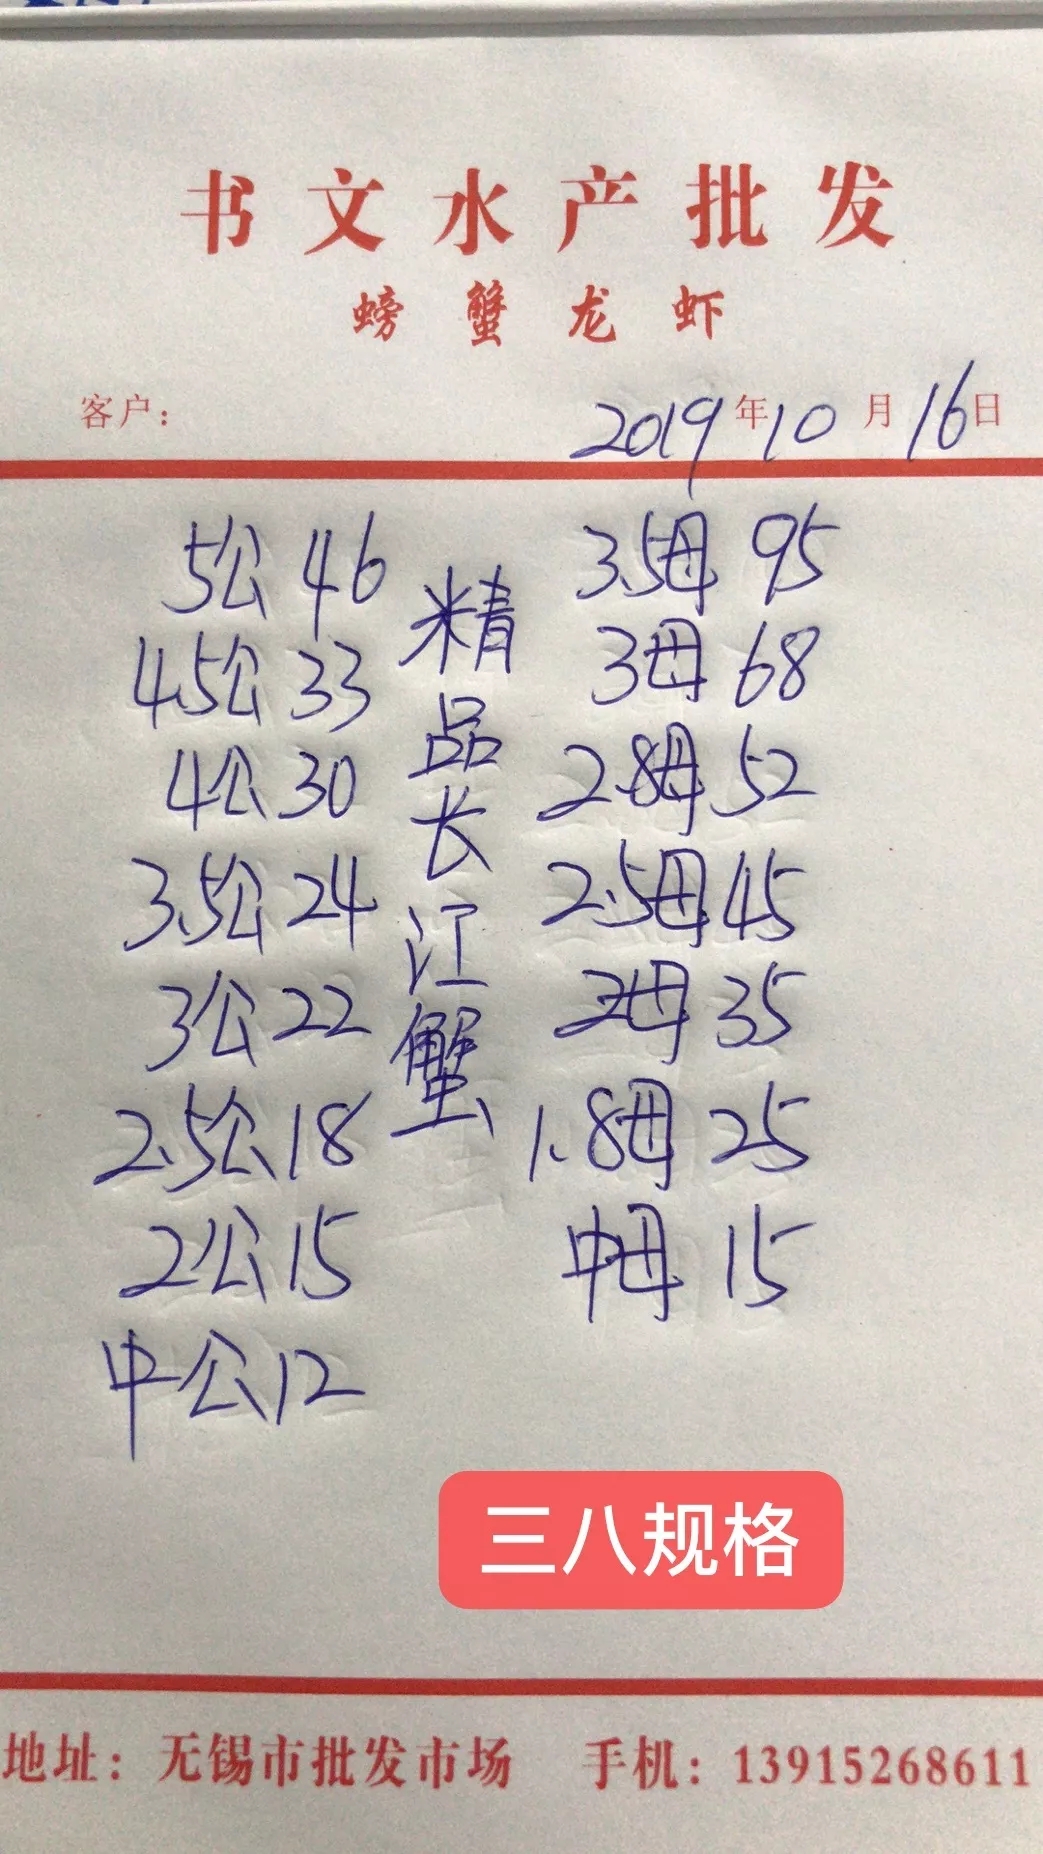 书文水产批发
螃蟹龙虾
客户: 2019年10月16日
5公 46
4.5公 33
4公 30
3.5公 24
3公 22
2.5公 18
2公 15
中公 12
精品长江蟹
3.5母 95
3母 68
2.8母 52
2.5母 45
2母 35
1.8母 25
中母 15
三八规格
地址: 无锡市批发市场 手机: 13915268611